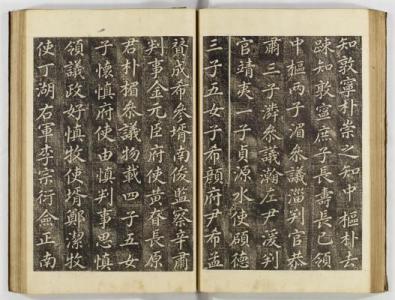 知敦寧朴崇之知中樞朴去
踈知敦寧庶子長壽長己領
中樞兩子湄叅議淄判官恭
肅三子潾叅議瀚左尹湲判
官靖夷一子貞源水使碩德
三子五女子希顔府尹希孟
贊成希參壻南俊監察辛肅
判事金元臣府使黃眷長原
君朴楣叅議物載四子五女
子懷慎府使由慎判事思慎
領議政好慎牧使壻鄭潔牧
使丁湖右軍李宗衍僉正南